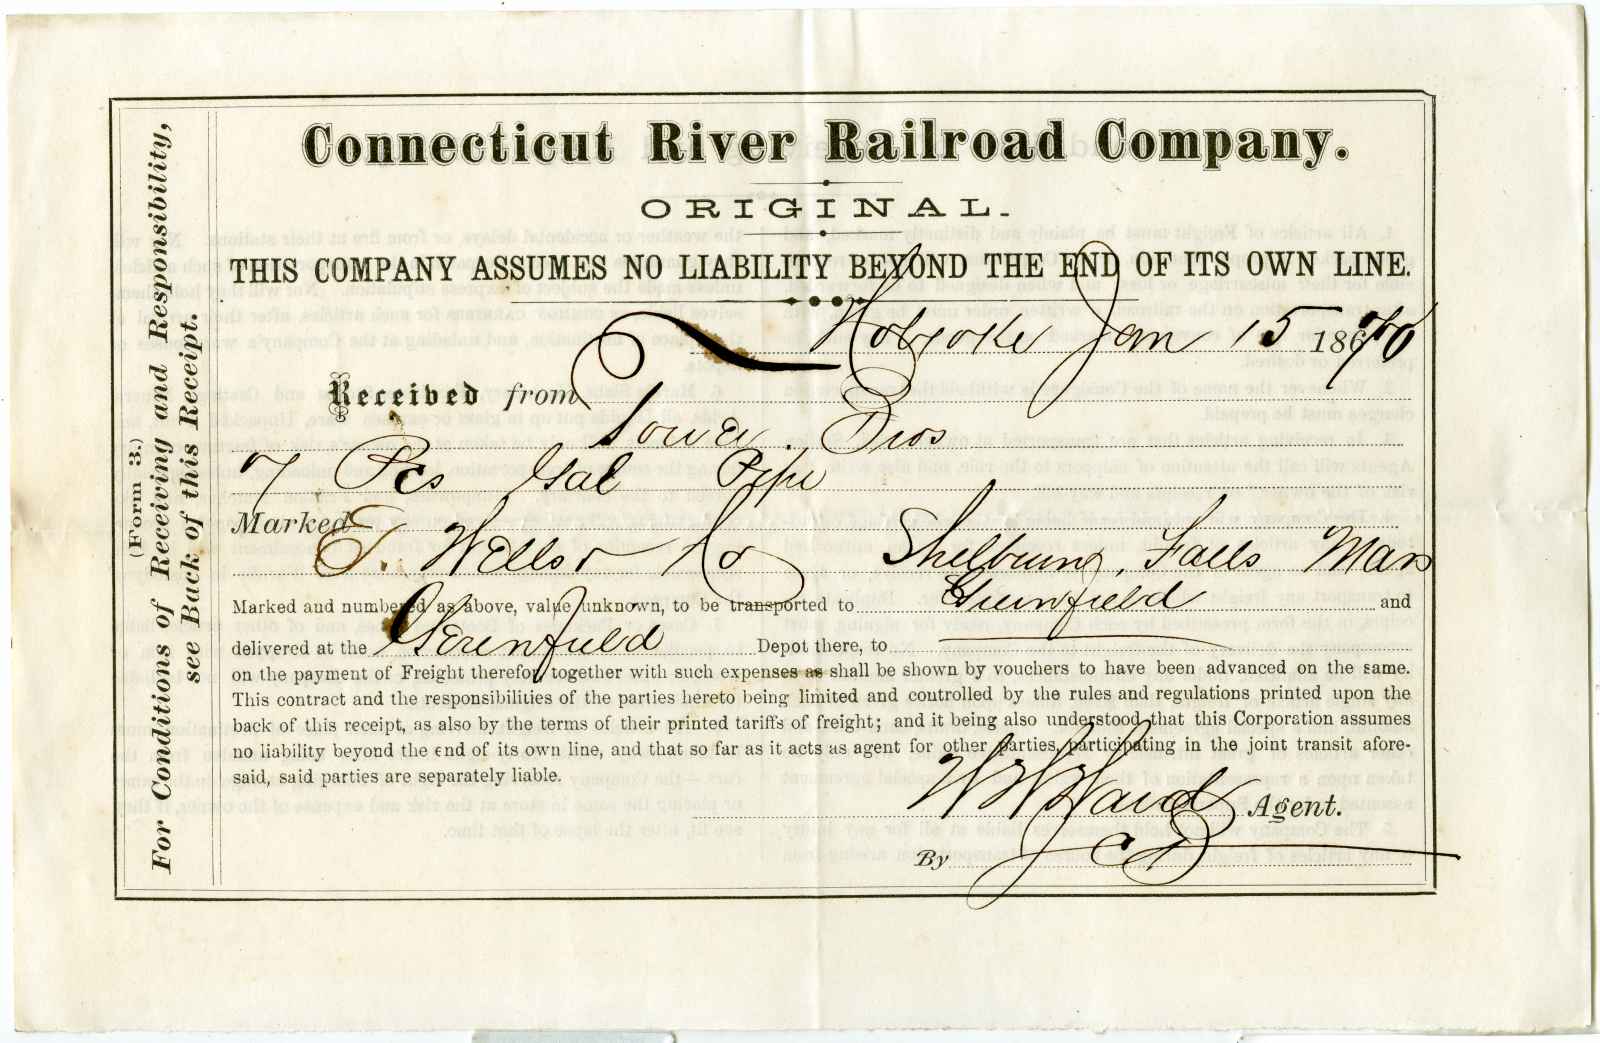 (Form 3.)
For Conditions of Receiving and Responsibility,
see Back of this Receipt.
Connecticut River Railroad Company.
ORIGINAL.
THIS COMPANY ASSUMES NO LIABILITY BEYOND THE END OF ITS OWN LINE.
Holyoke Jan 15 186
Received from
Bros
7 Pcs Gal Pipe
Marked
E. Wells & Co Shelburne Falls Mass
Marked and numbered as above, value unknown, to be transported to Greenfield and
delivered at the Greenfield Depot there, to
on the payment of Freight therefor, together with such expenses as shall be shown by vouchers to have been advanced on the same.
This contract and the responsibilities of the parties hereto being limited and controlled by the rules and regulations printed upon the
back of this receipt, as also by the terms of their printed tariffs of freight; and it being also understood that this Corporation assumes
no liability beyond the end of its own line, and that so far as it acts as agent for other parties, participating in the joint transit afore-
said, said parties are separately liable.
W W Ward Agent.
By